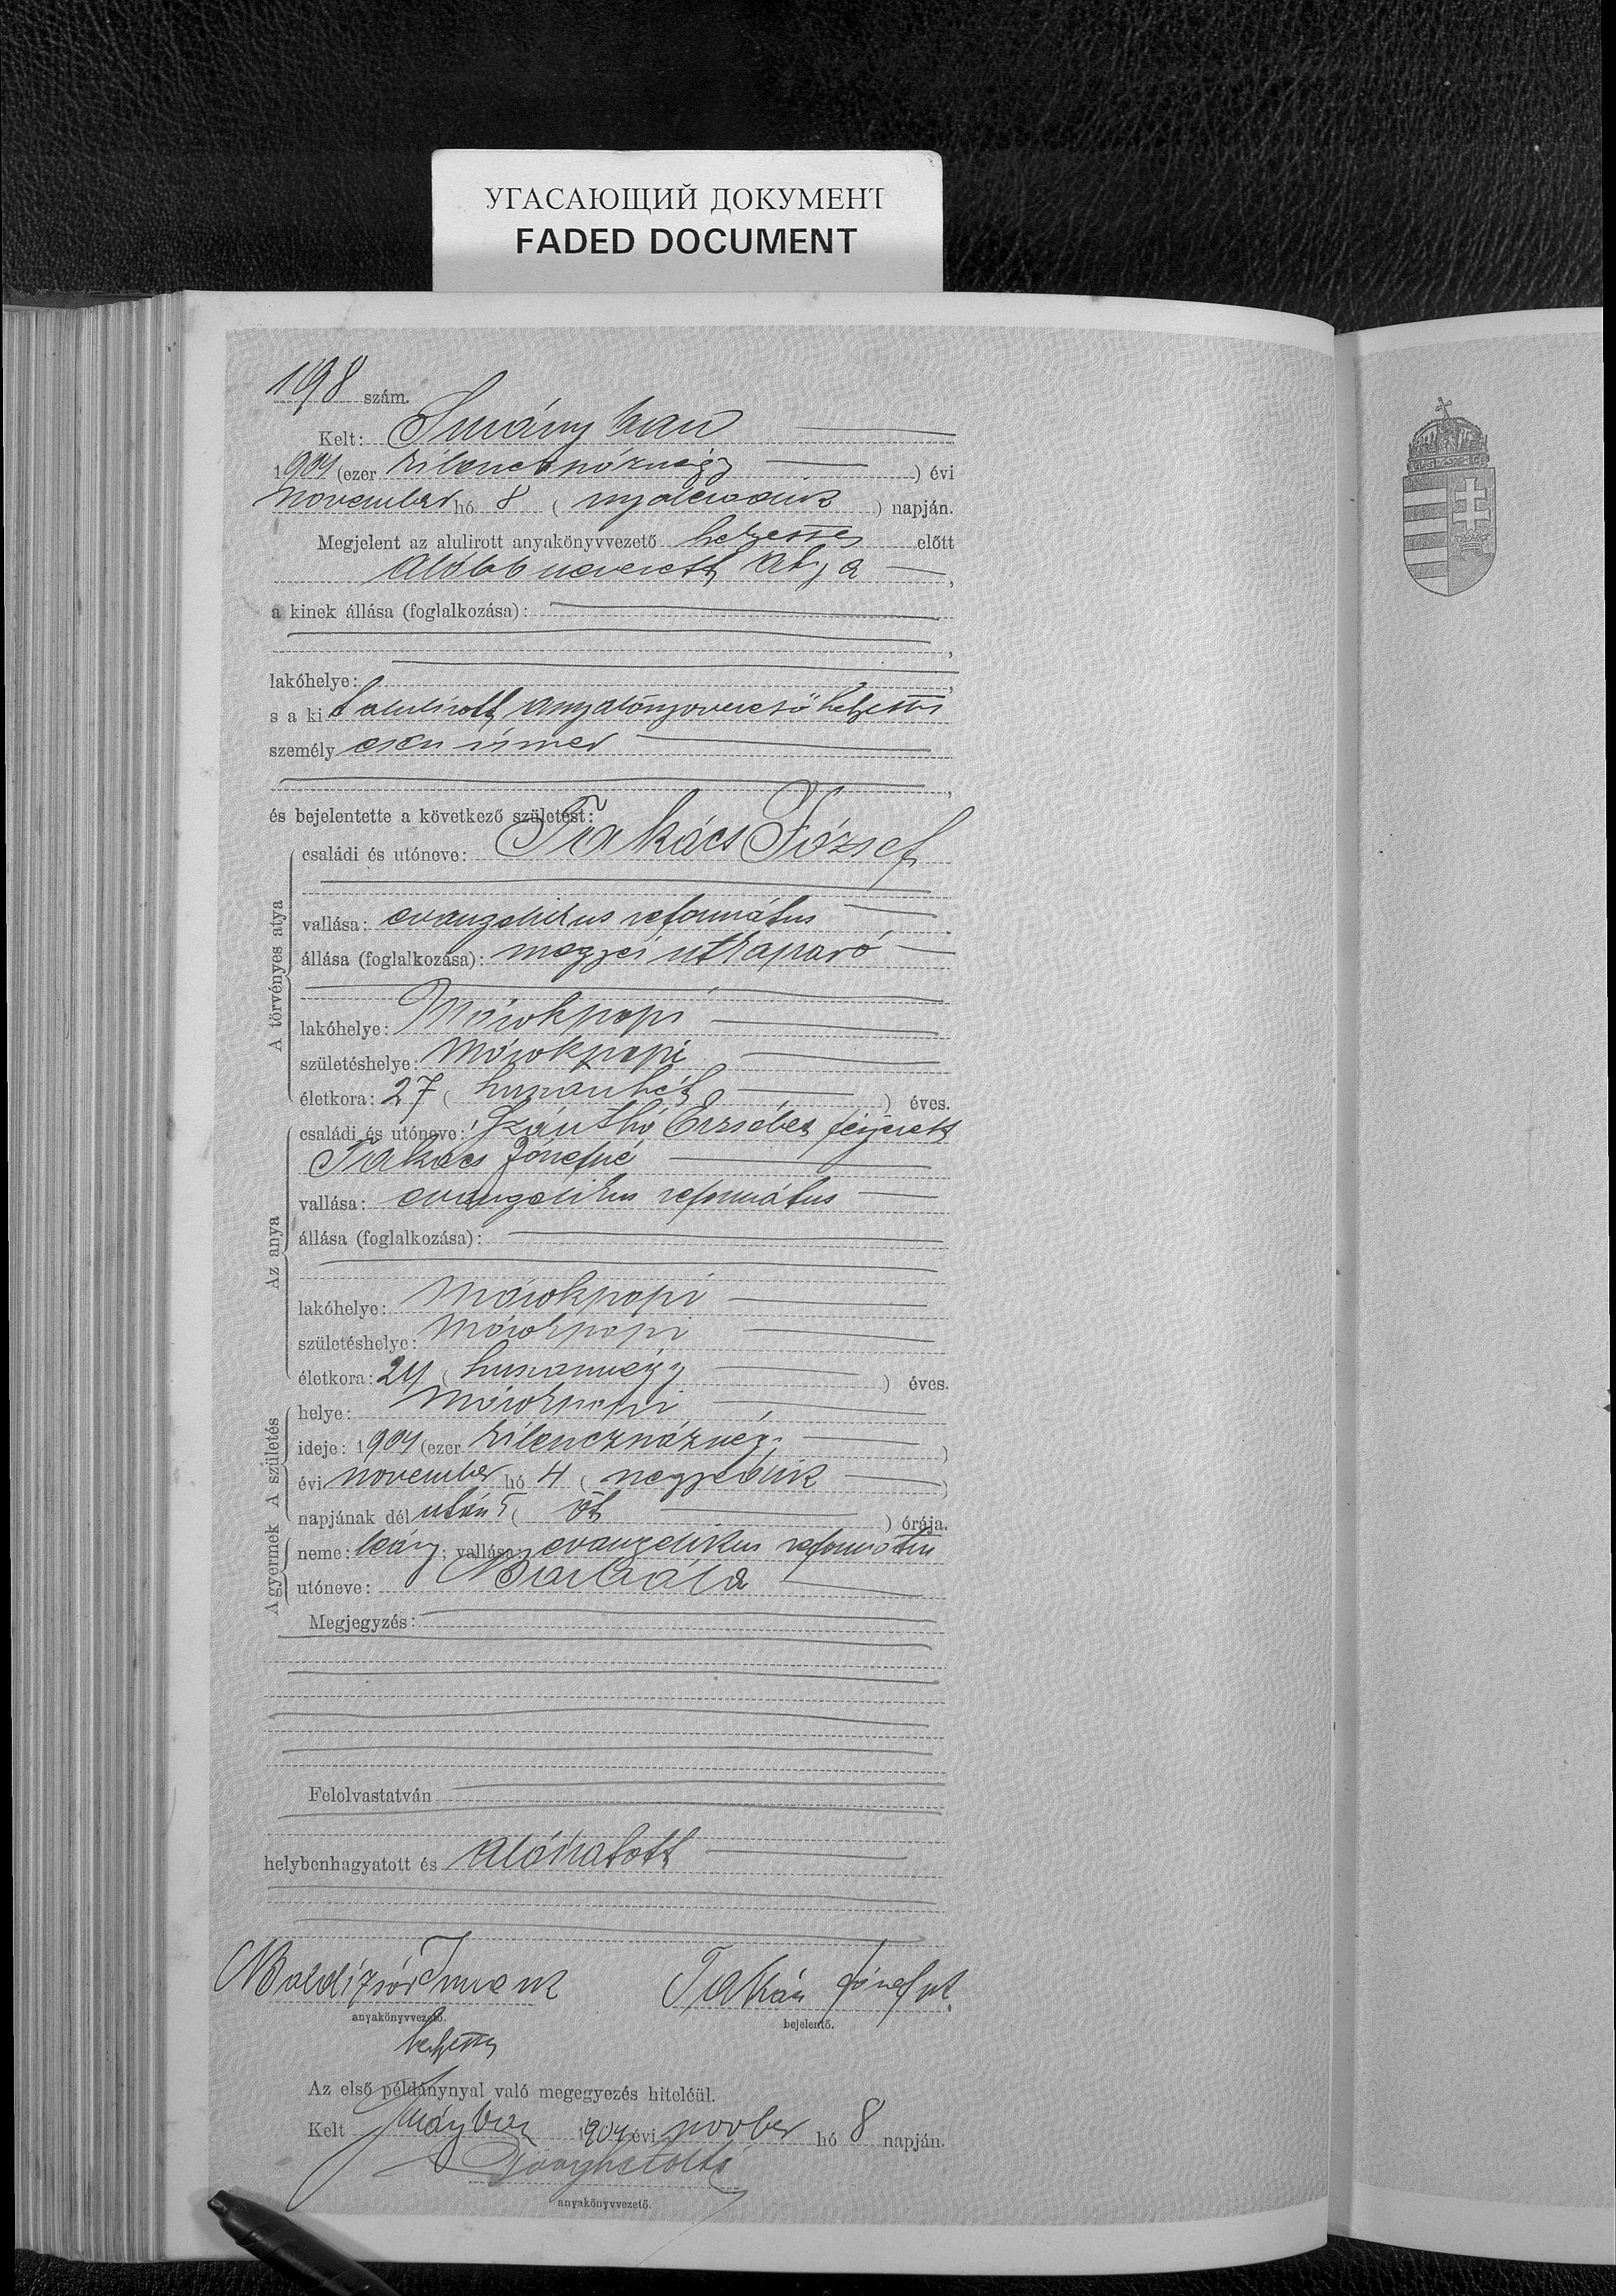 УГАСАЮЩИЙ ДОКУМЕНТ
FADED DOCUMENT
198 szám.
Kelt: Surányban
1904 (ezer kilenczszáznégy) évi
november hó 8 (nyolczadik) napján.
Megjelent az alulirott anyakönyvvezető helyettes előtt
Alább nevezett atya,
a kinek állása (foglalkozása):
lakóhelye:
s a kit alulirott anyakönyvvezető helyettes
személyesen ismer
és bejelentette a következő születést:
A törvényes atya
családi és utóneve: Takács József
vallása: evangelikus református
állása (foglalkozása): megyei utkaparó
lakóhelye: Márokpapi
születéshelye: Márokpapi
életkora: 27 (huszonhét) éves.
Az anya
családi és utóneve: Szánthó Erzsébet férjezett
Takács Józsefné
vallása: evangelikus református
állása (foglalkozása):
lakóhelye: Márokpapi
születéshelye: Márokpapi
életkora: 24 (huszonnégy) éves.
A születés
helye: Márokpapi
ideje: 1904 (ezer kilenczszáznégy)
évi november hó 4 (negyedik)
napjának délután 5 (öt) órája.
A gyermek
neme: leány; vallása: evangelikus református
utóneve: Borbála
Megjegyzés:
Felolvastatván
helybenhagyatott és aláíratott
Baldizsár
anyakönyvvezető.
helyettes
Takács József
bejelentő.
Az első példánynyal való megegyezés hiteléül.
Kelt 1904 évi novber hó 8 napján.
anyakönyvvezető.